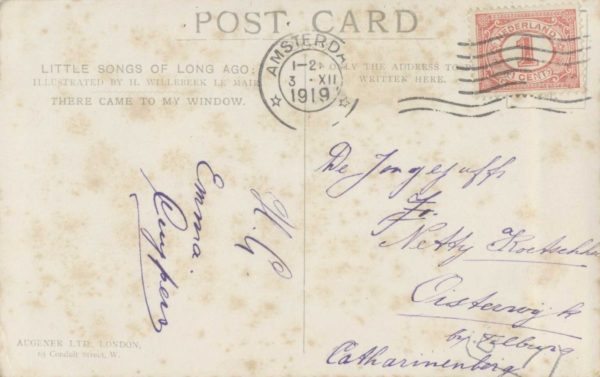 POST CARD
LITTLE SONGS OF LONG AGO:
ILLUSTRATED BY H. WILLEBEEK LE MAIR
THERE CAME TO MY WINDOW.
ONLY THE ADDRESS TO
WRITTEN HERE.
AMSTERDA
1-2
3 XII
1919
NEDERLAND
1
CENT
H. G.
Emma
Cuypers
De Jongejuffr.
Fr.
Netty
Oisterwijk
bij Tilburg
Catharinenberg
AUGENER LTD. LONDON,
63 Conduit Street, W.